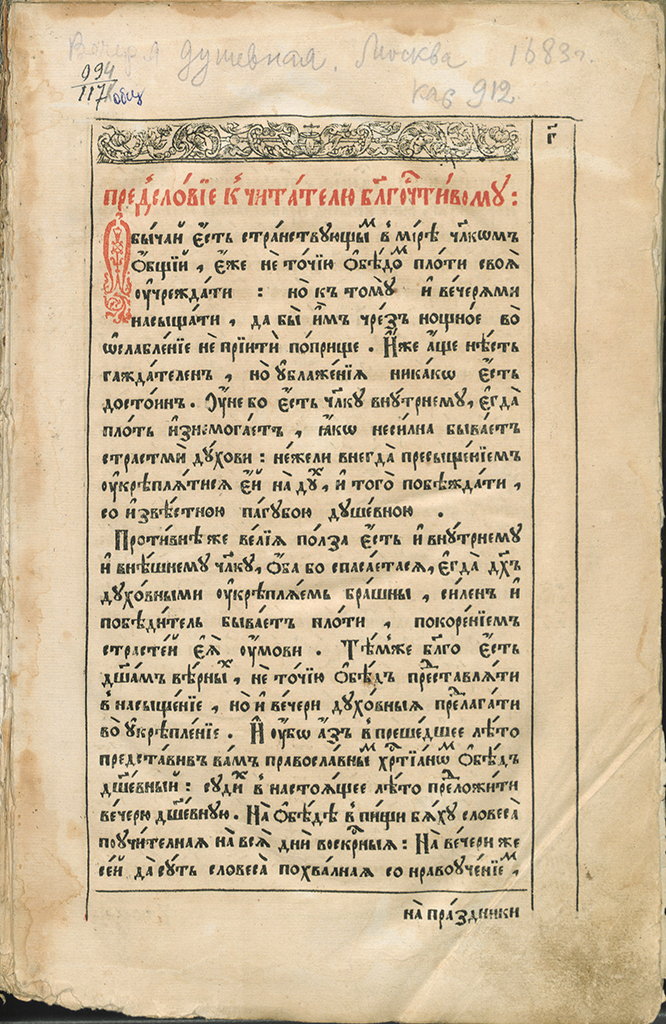 Вечеря душевная. Москва 1683 г.
994
117
Каб 912.
г҃
предⷭ҇ло́вїе к̾ чита́телю бл҃гочⷭ҇ти́вому :
Ѻ҆бы́чай є҆́сть стра́нствующыⷨ в̾ мі́рѣ чл҃кѡмъ
ѻ҆́бщїй , є҆́же не то́чїю ѻ҆бѣ́доⷨ пло́ти своѧ̀
ᲂу҆чрежда́ти : но̀ къ томꙋ̀ и҆ вече́рѧми
насыща́ти , да бы̀ и҆̀мъ чре́зъ нощно́е во
ѡ҆слабле́нїе не прїитѝ по́прище . И҆́же а҆́ще нѣ́сть
гажда́теленъ , но̀ ᲂу҆блаже́нїѧ ника́кѡ є҆́сть
досто́инъ . Ѹ҆́не бо є҆́сть чл҃кꙋ внꙋ́трнемꙋ , є҆гда̀
пло́ть и҆знемога́етъ , ꙗ҆́кѡ неси́лна быва́етъ
страстьмѝ дꙋ́хови : не́жели внегда̀ пресыще́нїемъ
ᲂу҆крѣплѧ́тисѧ є҆́й на дꙋⷯ , и҆ того̀ побѣжда́ти ,
со и҆звѣ́стною па́гꙋбою дꙋше́вною .
Проти́внѣ же ве́лїѧ по́лза є҆́сть и҆ внꙋ́трнемꙋ
и҆ внѣ́шнемꙋ чл҃кꙋ , ѻ҆́ба бо спаса́етасѧ , є҆гда̀ дх҃ъ
дꙋхо́вными ᲂу҆крѣплѧ́емь бра́шны , си́ленъ и҆
побѣди́тель быва́етъ пло́ти , покоре́нїемъ
страсте́й є҆ѧ̀ ᲂу҆мови . Тѣ́мже бл҃го є҆́сть
дш҃а́мъ вѣ́рныⷯ , не то́чїю ѻ҆бѣ́дъ преⷣставлѧ́ти
в̾ насыще́нїе , но̀ и҆ ве́чери дꙋхо́вныѧ преⷣлага́ти
во ᲂу҆крѣпле́нїе . И҆ ᲂу҆́бѡ а҆́зъ в̾ преше́дшее лѣ́то
предста́вивъ ва́мъ правосла́вныⷨ хрⷭ҇тїа́нѡⷨ ѻ҆бѣ́дъ
дш҃е́вный : сꙋди́хъ в̾ настоѧ́щее лѣ́то преⷣложи́ти
вече́рю дш҃е́внꙋю . На ѻ҆бѣ́дѣ в̾ пи́щи бѧ́хꙋ словеса̀
поꙋчи́телнаѧ на всѧ̀ дни̑ воскрⷭ҇ныѧ : На вече́ри же
се́й да сꙋ́ть словеса̀ похва́лнаѧ со нравоꙋче́нїеⷨ ,
на пра́здники